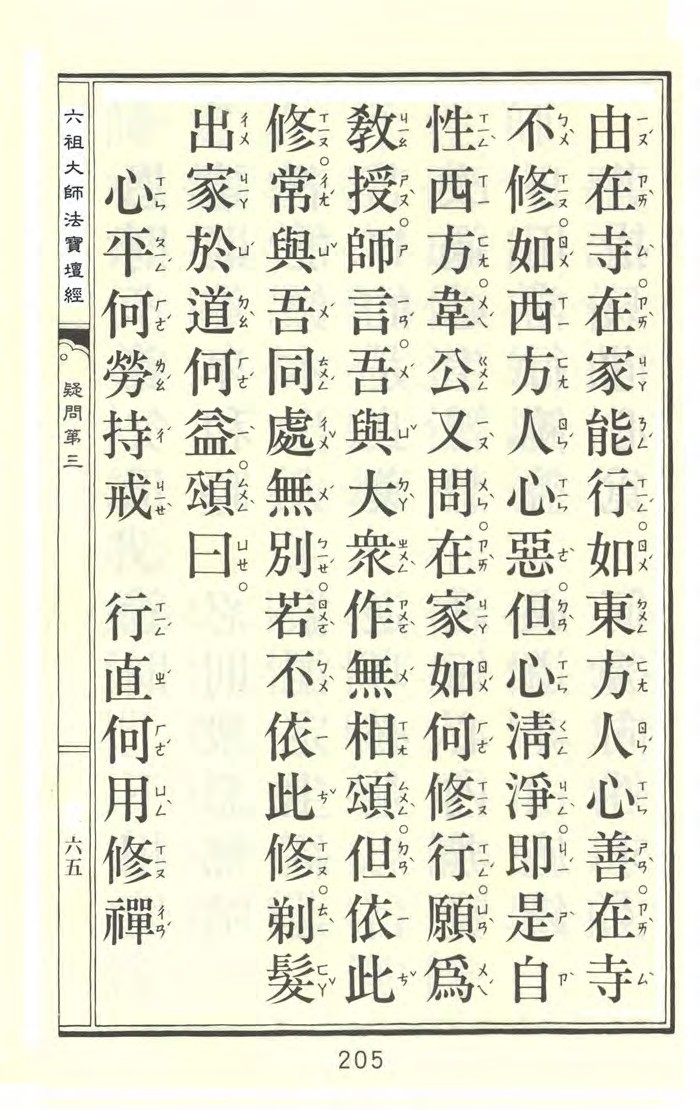 由在寺。在家能行。如東方人心善。在寺
不修。如西方人心惡。但心淸淨。即是自
性西方。韋公又問。在家如何修行。願爲
敎授。師言。吾與大衆作無相頌。但依此
修。常與吾同處無別。若不依此修。剃髮
出家。於道何益。頌曰。
心平何勞持戒　行直何用修禪
六祖大師法寶壇經
疑問第三
六五
205